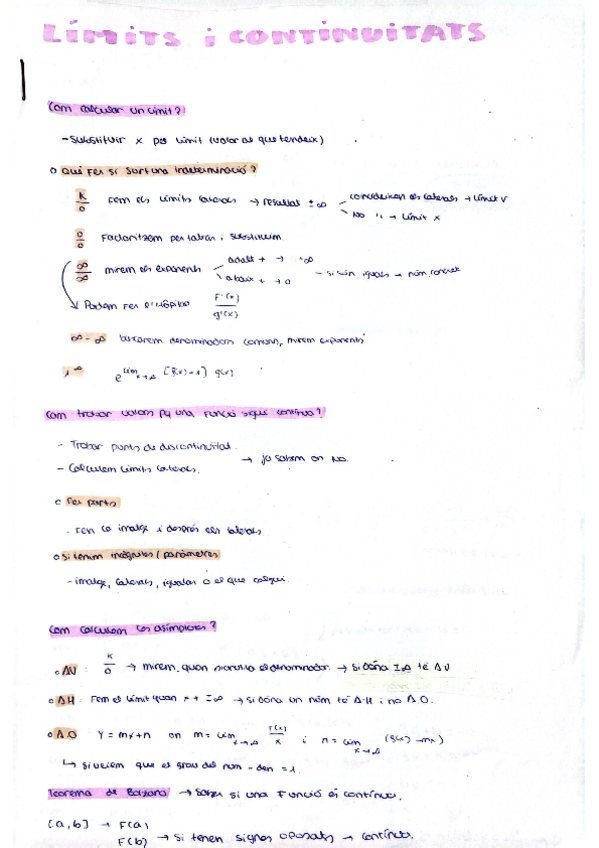 LÍMITS i CONTINUITATS
Com calcular un límit?
- Substituir x pel límit (valor al que tendeix)
o Què fer si surt una indeterminació?
K/0 Fem els límits laterals → resultat ±∞ coincideixen els laterals → límit V
No " → límit x
0/0 Factoritzem per labas i substituim
∞/∞ mirem els exponents adalt + → +∞
abaix + → 0
- si són iguals → núm. concret
Podem fer L'Hôpital F'(x)/g'(x)
∞ - ∞ busquem denominadors comuns, mirem exponents
1^∞ e^lim x→∞ [f(x)-1] g(x)
Com trobar valors pq una funció sigui contínua?
- Trobar punts de discontinuitat.
- Calculem límits laterals.
→ ja sabem on NO.
o Per parts
- Fem la imatge i després els laterals
o Si tenim incògnites / paràmetres
- imatge, laterals, igualar o el que calgui.
Com calculem les asímptotes?
o AV : K/0 → mirem quan s'anul·la el denominador → Si dóna ±∞ té AV
o AH : Fem el límit quan x → ±∞ → si dóna un núm té A.H i no A.O.
o A.O Y = mx+n on m = lim x→∞ f(x)/x i n = lim x→∞ (g(x) - mx)
↳ si veiem que el grau del num - den = 1.
Teorema de Bolzano → Saber si una funció és contínua.
[a,b] → F(a)
F(b) → si tenen signes oposats → contínua.